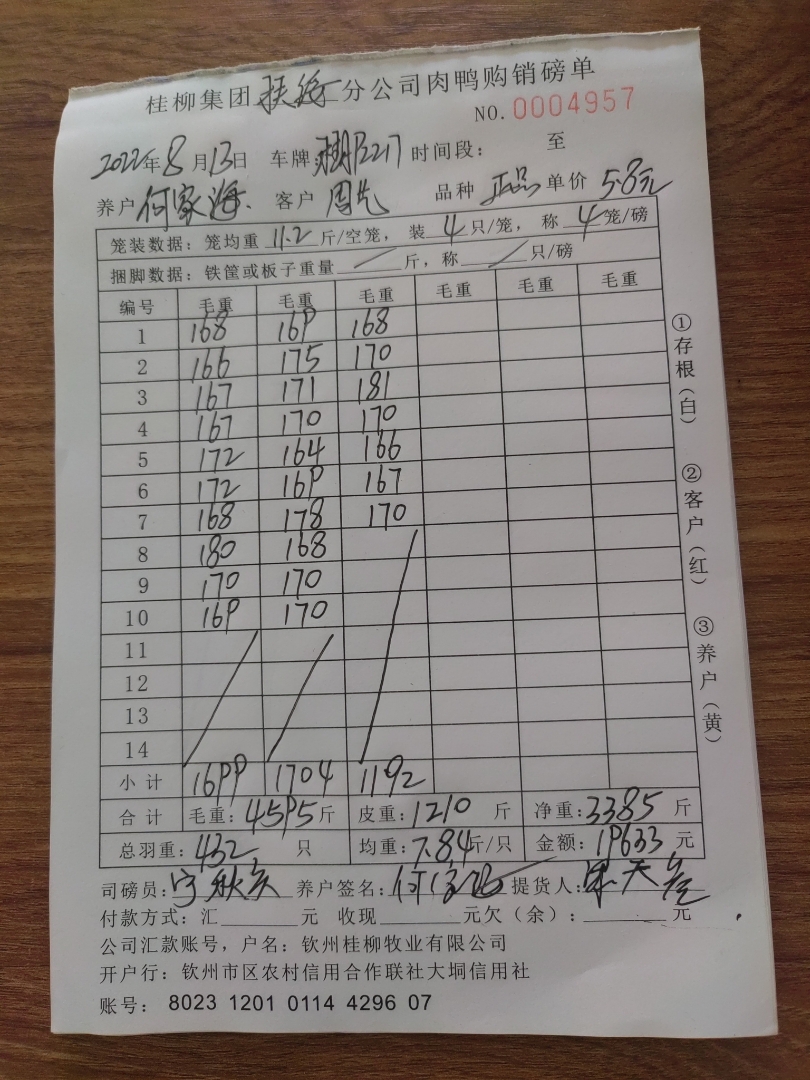 桂柳集团扶绥分公司肉鸭购销磅单
NO. 0004957
2022年8月13日 车牌 时间段： 至
养户 何家海 客户 周先 品种 正品 单价 5.8元
笼装数据：笼均重 11.2 斤/空笼，装 4 只/笼，称 4 笼/磅
捆脚数据：铁筐或板子重量 / 斤，称 / 只/磅
编号 毛重 毛重 毛重 毛重 毛重 毛重
1 168 169 168
2 166 175 170
3 167 171 181
4 167 170 170
5 172 164 166
6 172 169 167
7 168 178 170
8 180 168
9 170 170
10 169 170
11
12
13
14
小计 1699 1704 1192
合计 毛重：4595斤 皮重：1210 斤 净重：3385 斤
总羽重：432 只 均重：7.84斤/只 金额：19633 元
司磅员： 养户签名： 提货人：
付款方式：汇 元 收现 元欠（余）： 元
公司汇款账号，户名：钦州桂柳牧业有限公司
开户行：钦州市区农村信用合作联社大垌信用社
账号： 8023 1201 0114 4296 07
①存根（白）
②客户（红）
③养户（黄）